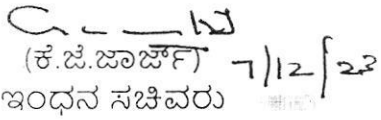 (ಕೆ.ಜೆ.ಜಾರ್ಜ್) 7/12/23
ಇಂಧನ ಸಚಿವರು